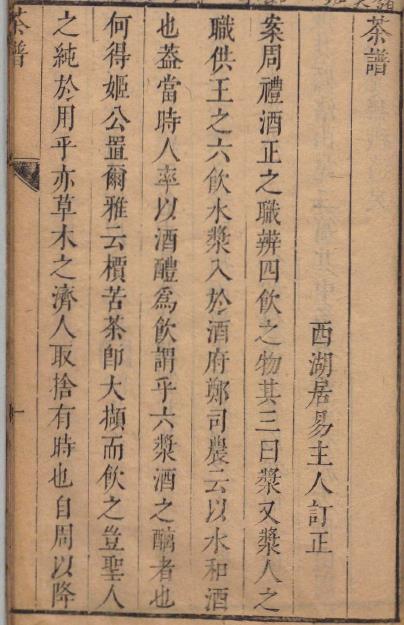 茶譜
西湖居易主人訂正
案周禮酒正之職辨四飲之物其三曰漿又漿人之
職供王之六飲水漿入於酒府鄭司農云以水和酒
也葢當時人率以酒醴爲飲謂乎六漿酒之醨者也
何得姬公置爾雅云檟苦茶卽大擷而飲之豈聖人
之純於用乎亦草木之濟人取捨有時也自周以降
茶譜